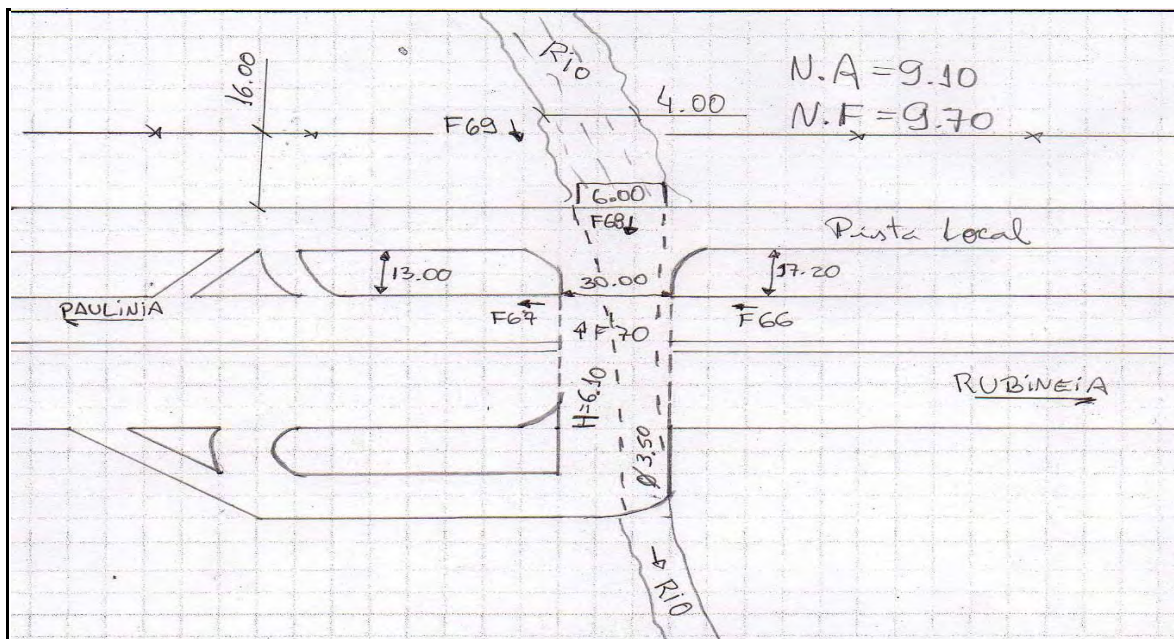 Rio
N.A = 9.10
N.F = 9.70
16.00
4.00
F69
6.00
F68
Pista Local
13.00
30.00
17.20
PAULINIA
F67
F70
F66
H=6.10
RUBINEIA
Ø 3.50
RIO